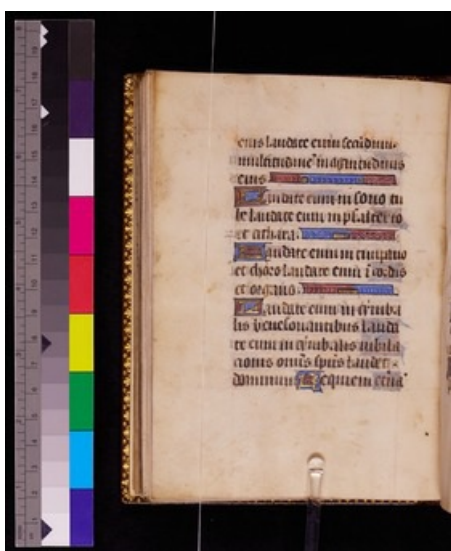 eius laudate eum secūdum
multitudinē magnitudinis
eius
Laudate eum in sono tu
be laudate eum in psalterio
et cithara
Laudate eum in timpano
et choro laudate eum ī cordis
et organo
Laudate eum in cymba
lis bene sonantibus lauda
te eum in cymbalis iubila
cionis omīs spūs laudet
dominum Requiem eternā